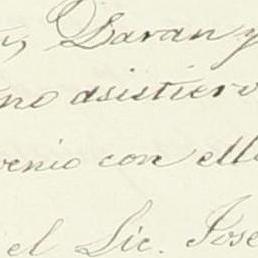 Baran y
no asistiero
venio con ell
el Lic. Jose